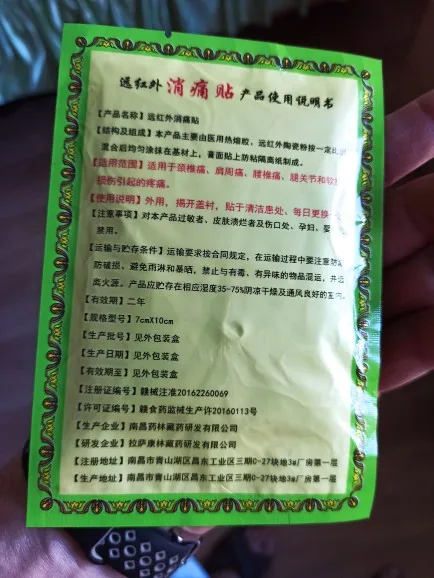 远红外 消痛贴 产品使用说明书
【产品名称】远红外消痛贴
【结构及组成】本产品主要由医用热熔胶、远红外陶瓷粉按一定比
混合后均匀涂抹在基材上，膏面贴上防粘隔离纸制成。
【适用范围】适用于颈椎痛、肩周痛、腰椎痛、腿关节和软
损伤引起的疼痛。
【使用说明】外用，揭开盖衬，贴于清洁患处、每日更换一
【注意事项】对本产品过敏者、皮肤溃烂者及伤口处、孕妇、婴
禁用。
【运输与贮存条件】运输要求按合同规定，在运输过程中要注意防
防破损、避免雨淋和暴晒，禁止与有毒、有异味的物品混运，并远
离火源。产品应贮存在相应湿度35-75%阴凉干燥及通风良好的室内
【有效期】二年
【规格型号】7cmX10cm
【生产批号】见外包装盒
【生产日期】见外包装盒
【有效期至】见外包装盒
【注册证编号】赣械注准20162260069
【许可证编号】赣食药监械生产许20160113号
【生产企业】南昌药林藏药研发有限公司
【研发企业】拉萨康林藏药研发有限公司
【注册地址】南昌市青山湖区昌东工业区三期C-27块地3#厂房第一层
【生产地址】南昌市青山湖区昌东工业区三期C-27块地3#厂房第一层